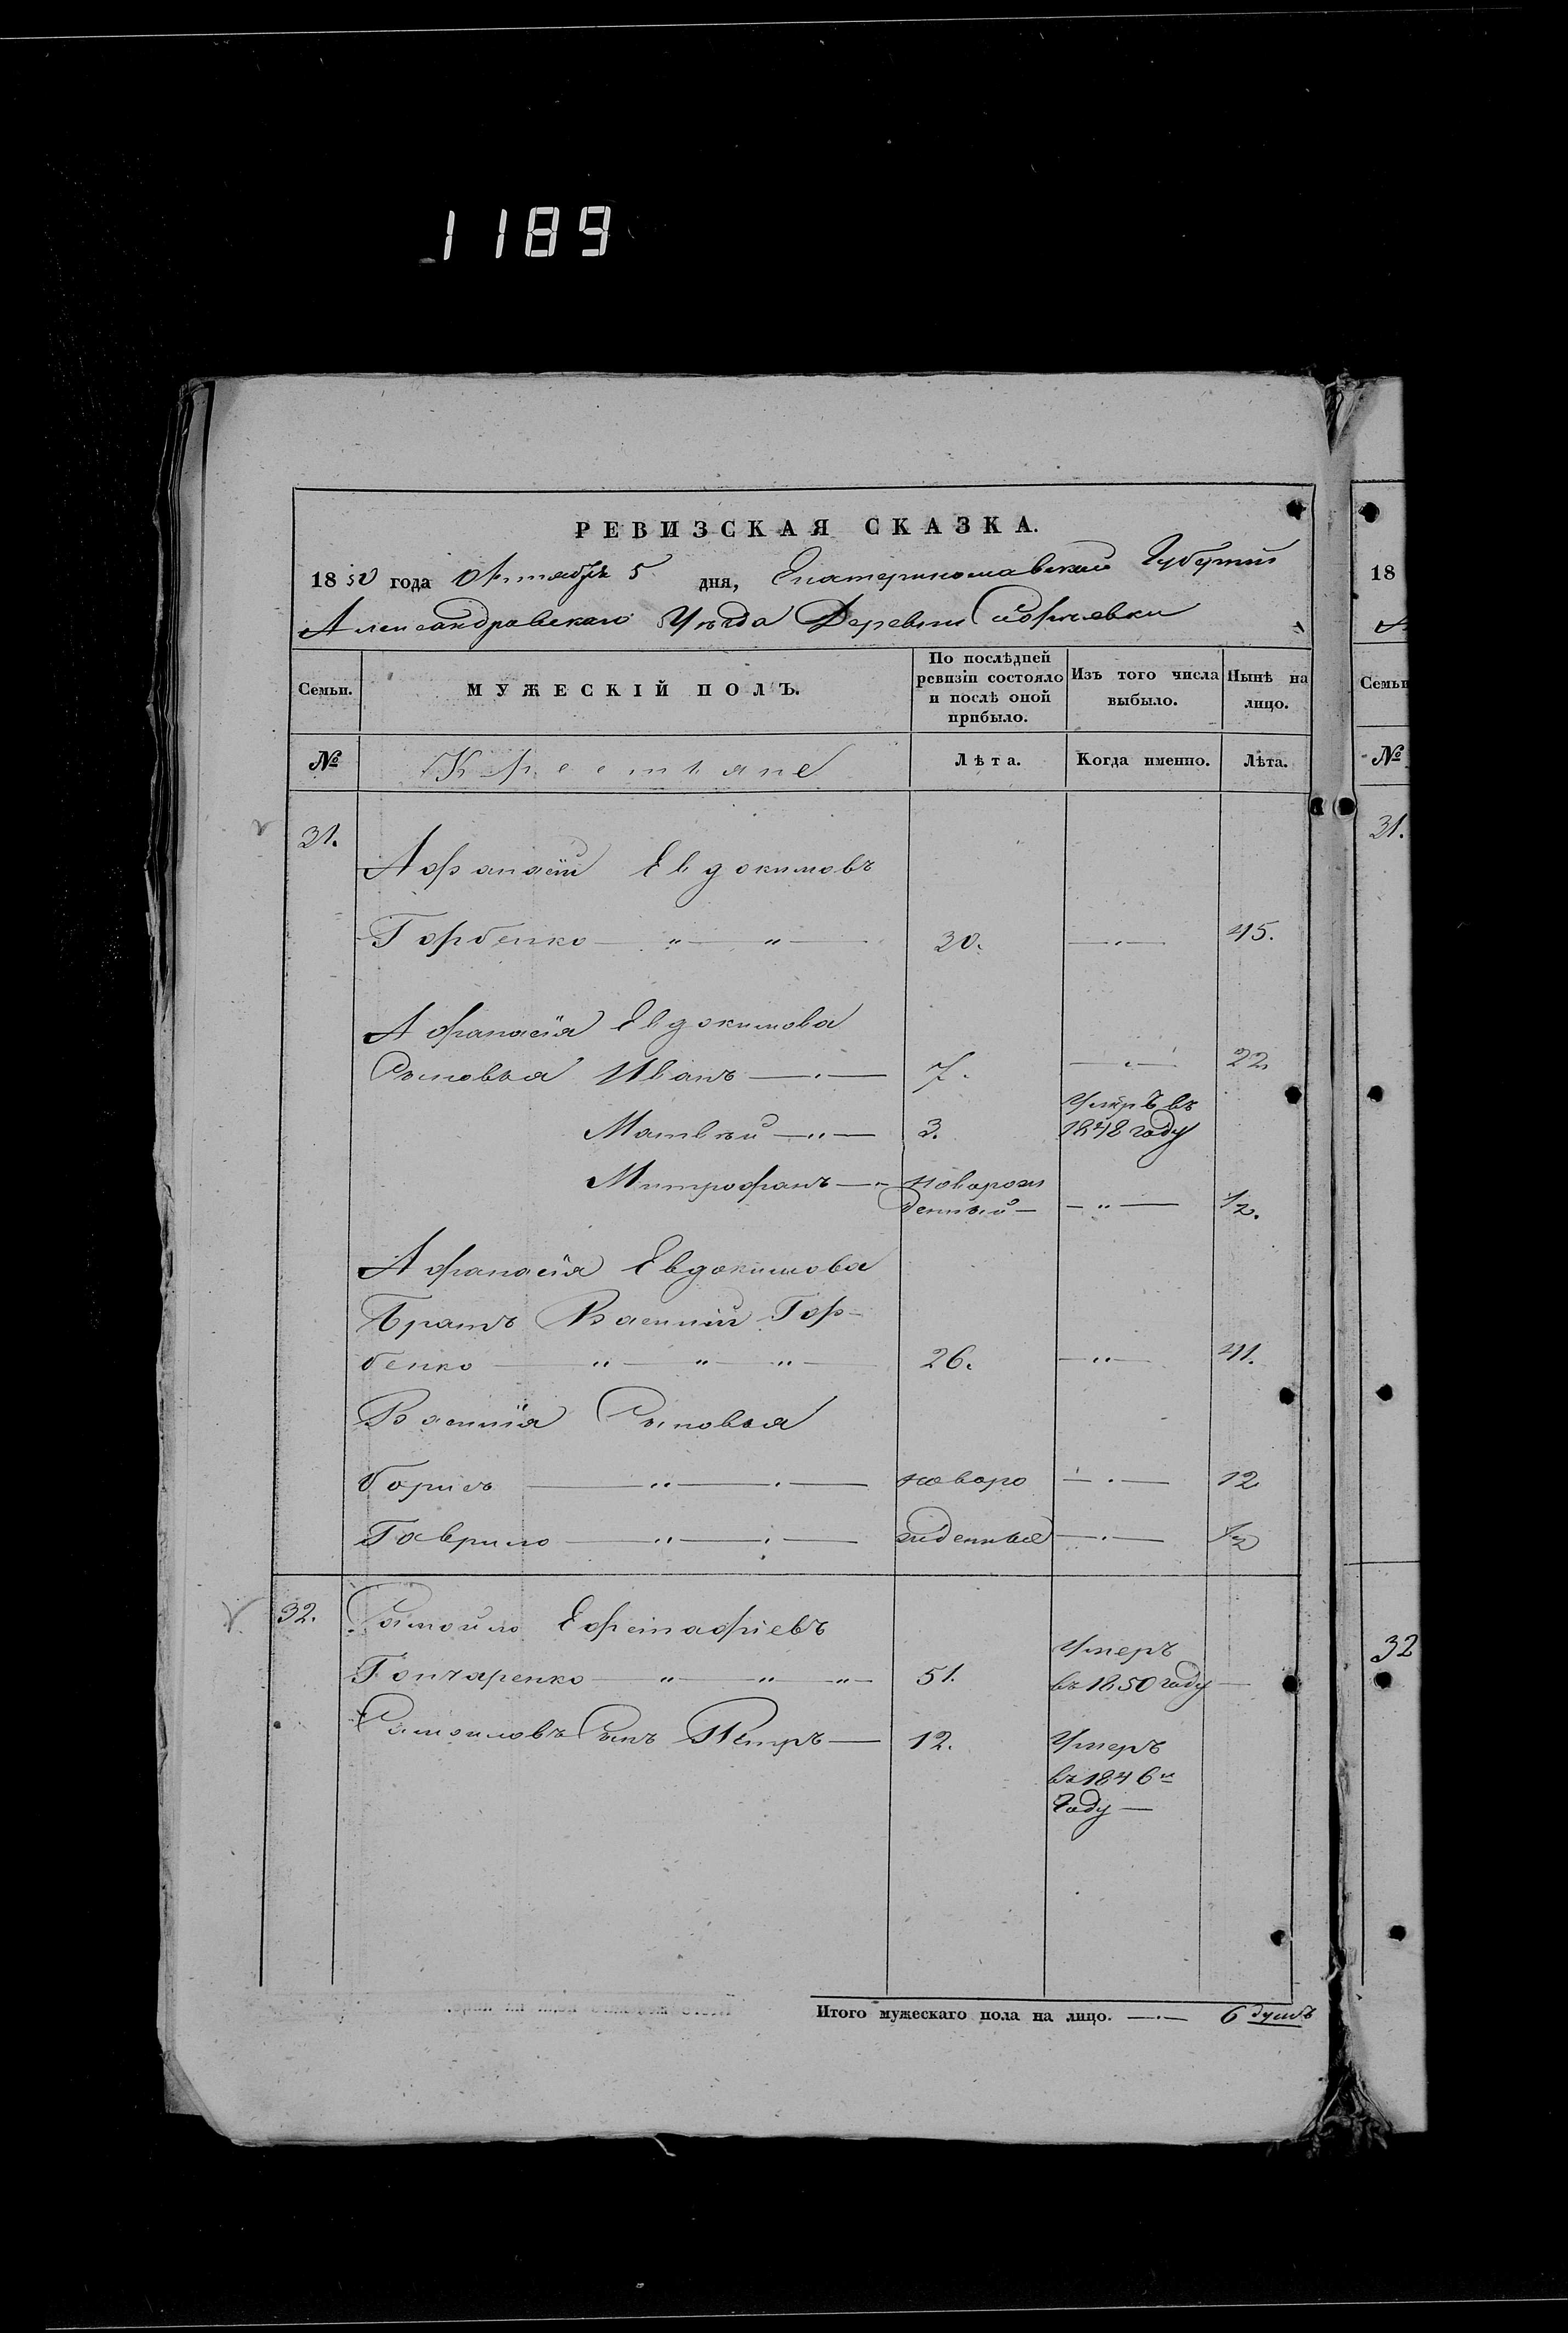 1189
РЕВИЗСКАЯ СКАЗКА.
1850 года Октября 5 дня, Екатеринославской Губернии
Александравскаго Уѣзда Деревни Софіевки
Семьи. МУЖЕСКІЙ ПОЛЪ. По послѣдней ревизіи состояло и послѣ оной прибыло. Изъ того числа выбыло. Нынѣ на лицо.
№ Крестьяне Лѣта. Когда именно. Лѣта.
31. Афанасій Евдокимовъ
Горбенко — „ — „ — 30. — „ — 45.
Афанасія Евдокимова
Сыновья Иванъ — „ — 7. — „ — 22
Матвѣй — „ — 3. Умеръ въ 1848 году
Митрофанъ — „ новорож
денный — — „ — 1/2.
Афанасія Евдокимова
Братъ Василій Гор-
бенко — „ — „ — „ — 26. — „ — 41.
Василія Сыновья
Борисъ — „ — „ — новоро — „ — 12
Гаврило — „ — „ — жденные — „ — 1/2
32. Самойло Евстафіевъ
Гончаренко — „ — „ — „ — 51. Умеръ въ 1850 году —
Самойловъ Сынъ Петръ — 12. Умеръ
въ 1846м
Году —
Итого мужескаго пола на лицо. — „ — 6 душъ
18
Семьи
№
31.
32